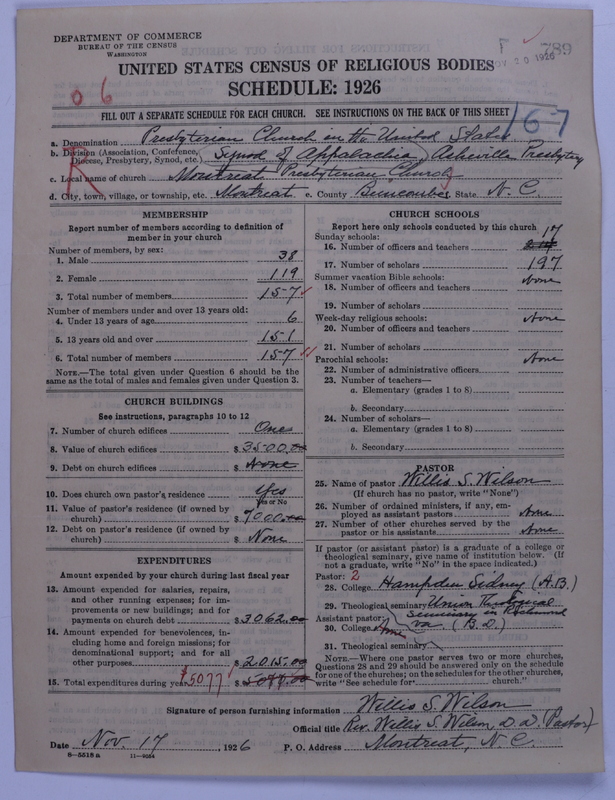 DEPARTMENT OF COMMERCE
BUREAU OF THE CENSUS
WASHINGTON
NOV 20 1926
789
UNITED STATES CENSUS OF RELIGIOUS BODIES
SCHEDULE: 1926
06
FILL OUT A SEPARATE SCHEDULE FOR EACH CHURCH. SEE INSTRUCTIONS ON THE BACK OF THIS SHEET
167
R
a. Denomination Presbyterian Church in the United States
b. Division (Association, Conference, Diocese, Presbytery, Synod, etc.) Synod of Appalachia, Asheville Presbytery
c. Local name of church Montreat Presbyterian Church
d. City, town, village, or township, etc. Montreat e. County Buncombe State N. C.
MEMBERSHIP
Report number of members according to definition of
member in your church
Number of members, by sex:
1. Male 38
2. Female 119
3. Total number of members 157
Number of members under and over 13 years old:
4. Under 13 years of age 6
5. 13 years old and over 151
6. Total number of members 157
NOTE.—The total given under Question 6 should be the
same as the total of males and females given under Question 3.
CHURCH BUILDINGS
See instructions, paragraphs 10 to 12
7. Number of church edifices One
8. Value of church edifices $ 3500.00
9. Debt on church edifices $ None
10. Does church own pastor's residence Yes
Yes or No
11. Value of pastor's residence (if owned by
church) $ 7000.00
12. Debt on pastor's residence (if owned by
church) $ None
EXPENDITURES
Amount expended by your church during last fiscal year
13. Amount expended for salaries, repairs,
and other running expenses; for im-
provements or new buildings; and for
payments on church debt $ 3062.00
14. Amount expended for benevolences, in-
cluding home and foreign missions; for
denominational support; and for all
other purposes $ 2015.00
15. Total expenditures during year $5077 $
CHURCH SCHOOLS
Report here only schools conducted by this church
Sunday schools:
16. Number of officers and teachers 17
17. Number of scholars 197
Summer vacation Bible schools: None
18. Number of officers and teachers
19. Number of scholars
Week-day religious schools: None
20. Number of officers and teachers
21. Number of scholars
Parochial schools: None
22. Number of administrative officers
23. Number of teachers—
a. Elementary (grades 1 to 8)
b. Secondary
24. Number of scholars—
a. Elementary (grades 1 to 8)
b. Secondary
PASTOR
25. Name of pastor Willis S. Wilson
(If church has no pastor, write "None")
26. Number of ordained ministers, if any, em-
ployed as assistant pastors None
27. Number of other churches served by the
pastor or his assistants None
If pastor (or assistant pastor) is a graduate of a college or
theological seminary, give name of institution below. (If
not a graduate, write "No" in the space indicated.)
Pastor: 2
28. College Hampden Sidney (A.B.)
29. Theological seminary Union Theological
Seminary in Richmond
Assistant pastor: Va (B.D.)
30. College None
31. Theological seminary
NOTE.—Where one pastor serves two or more churches,
Questions 28 and 29 should be answered only on the schedule
for one of the churches; on the schedules for the other churches,
write "See schedule for church."
Signature of person furnishing information Willis S. Wilson
Official title Rev. Willis S. Wilson, D.D. (Pastor)
Date Nov. 17, 1926 P. O. Address Montreat, N. C.
8—5518a 11—9034